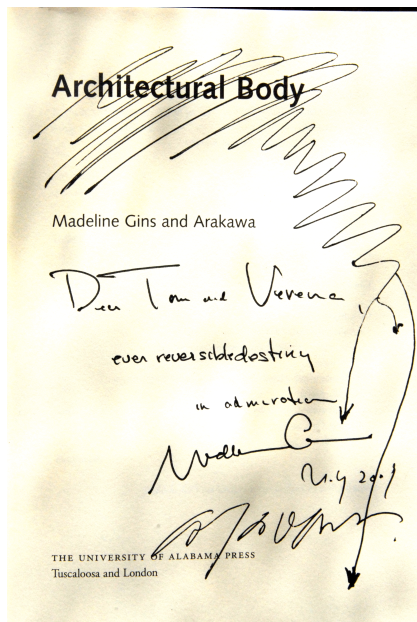 Architectural Body
Madeline Gins and Arakawa
Dear Tom and Verena,
ever reversibledestiny
in admiration
Madeline Gins
2009
Arakawa
THE UNIVERSITY OF ALABAMA PRESS
Tuscaloosa and London